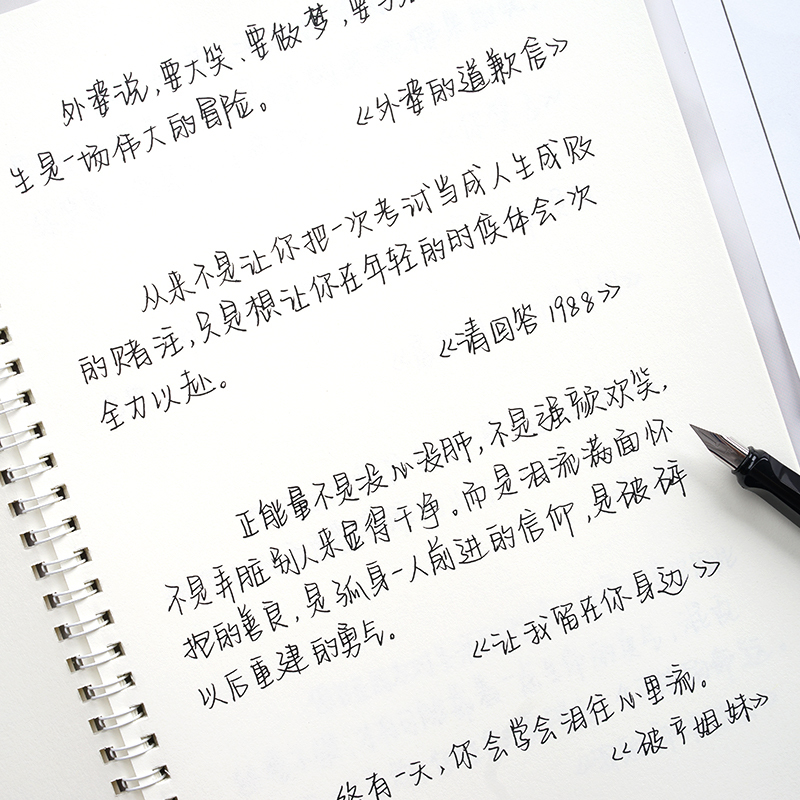 外婆说,要大笑、要做梦,要与
生是一场伟大的冒险。
《外婆的道歉信》
从来不是让你把一次考试当成人生成败
的赌注,只是想让你在年轻的时候体会一次
全力以赴。
《请回答1988》
正能量不是没心没肺,不是强颜欢笑,
不是弄脏别人来显得干净。而是泪流满面怀
抱的善良,是孤身一人前进的信仰,是破碎
以后重建的勇气。
《让我留在你身边》
终有一天,你会学会泪往心里流。
《破产姐妹》